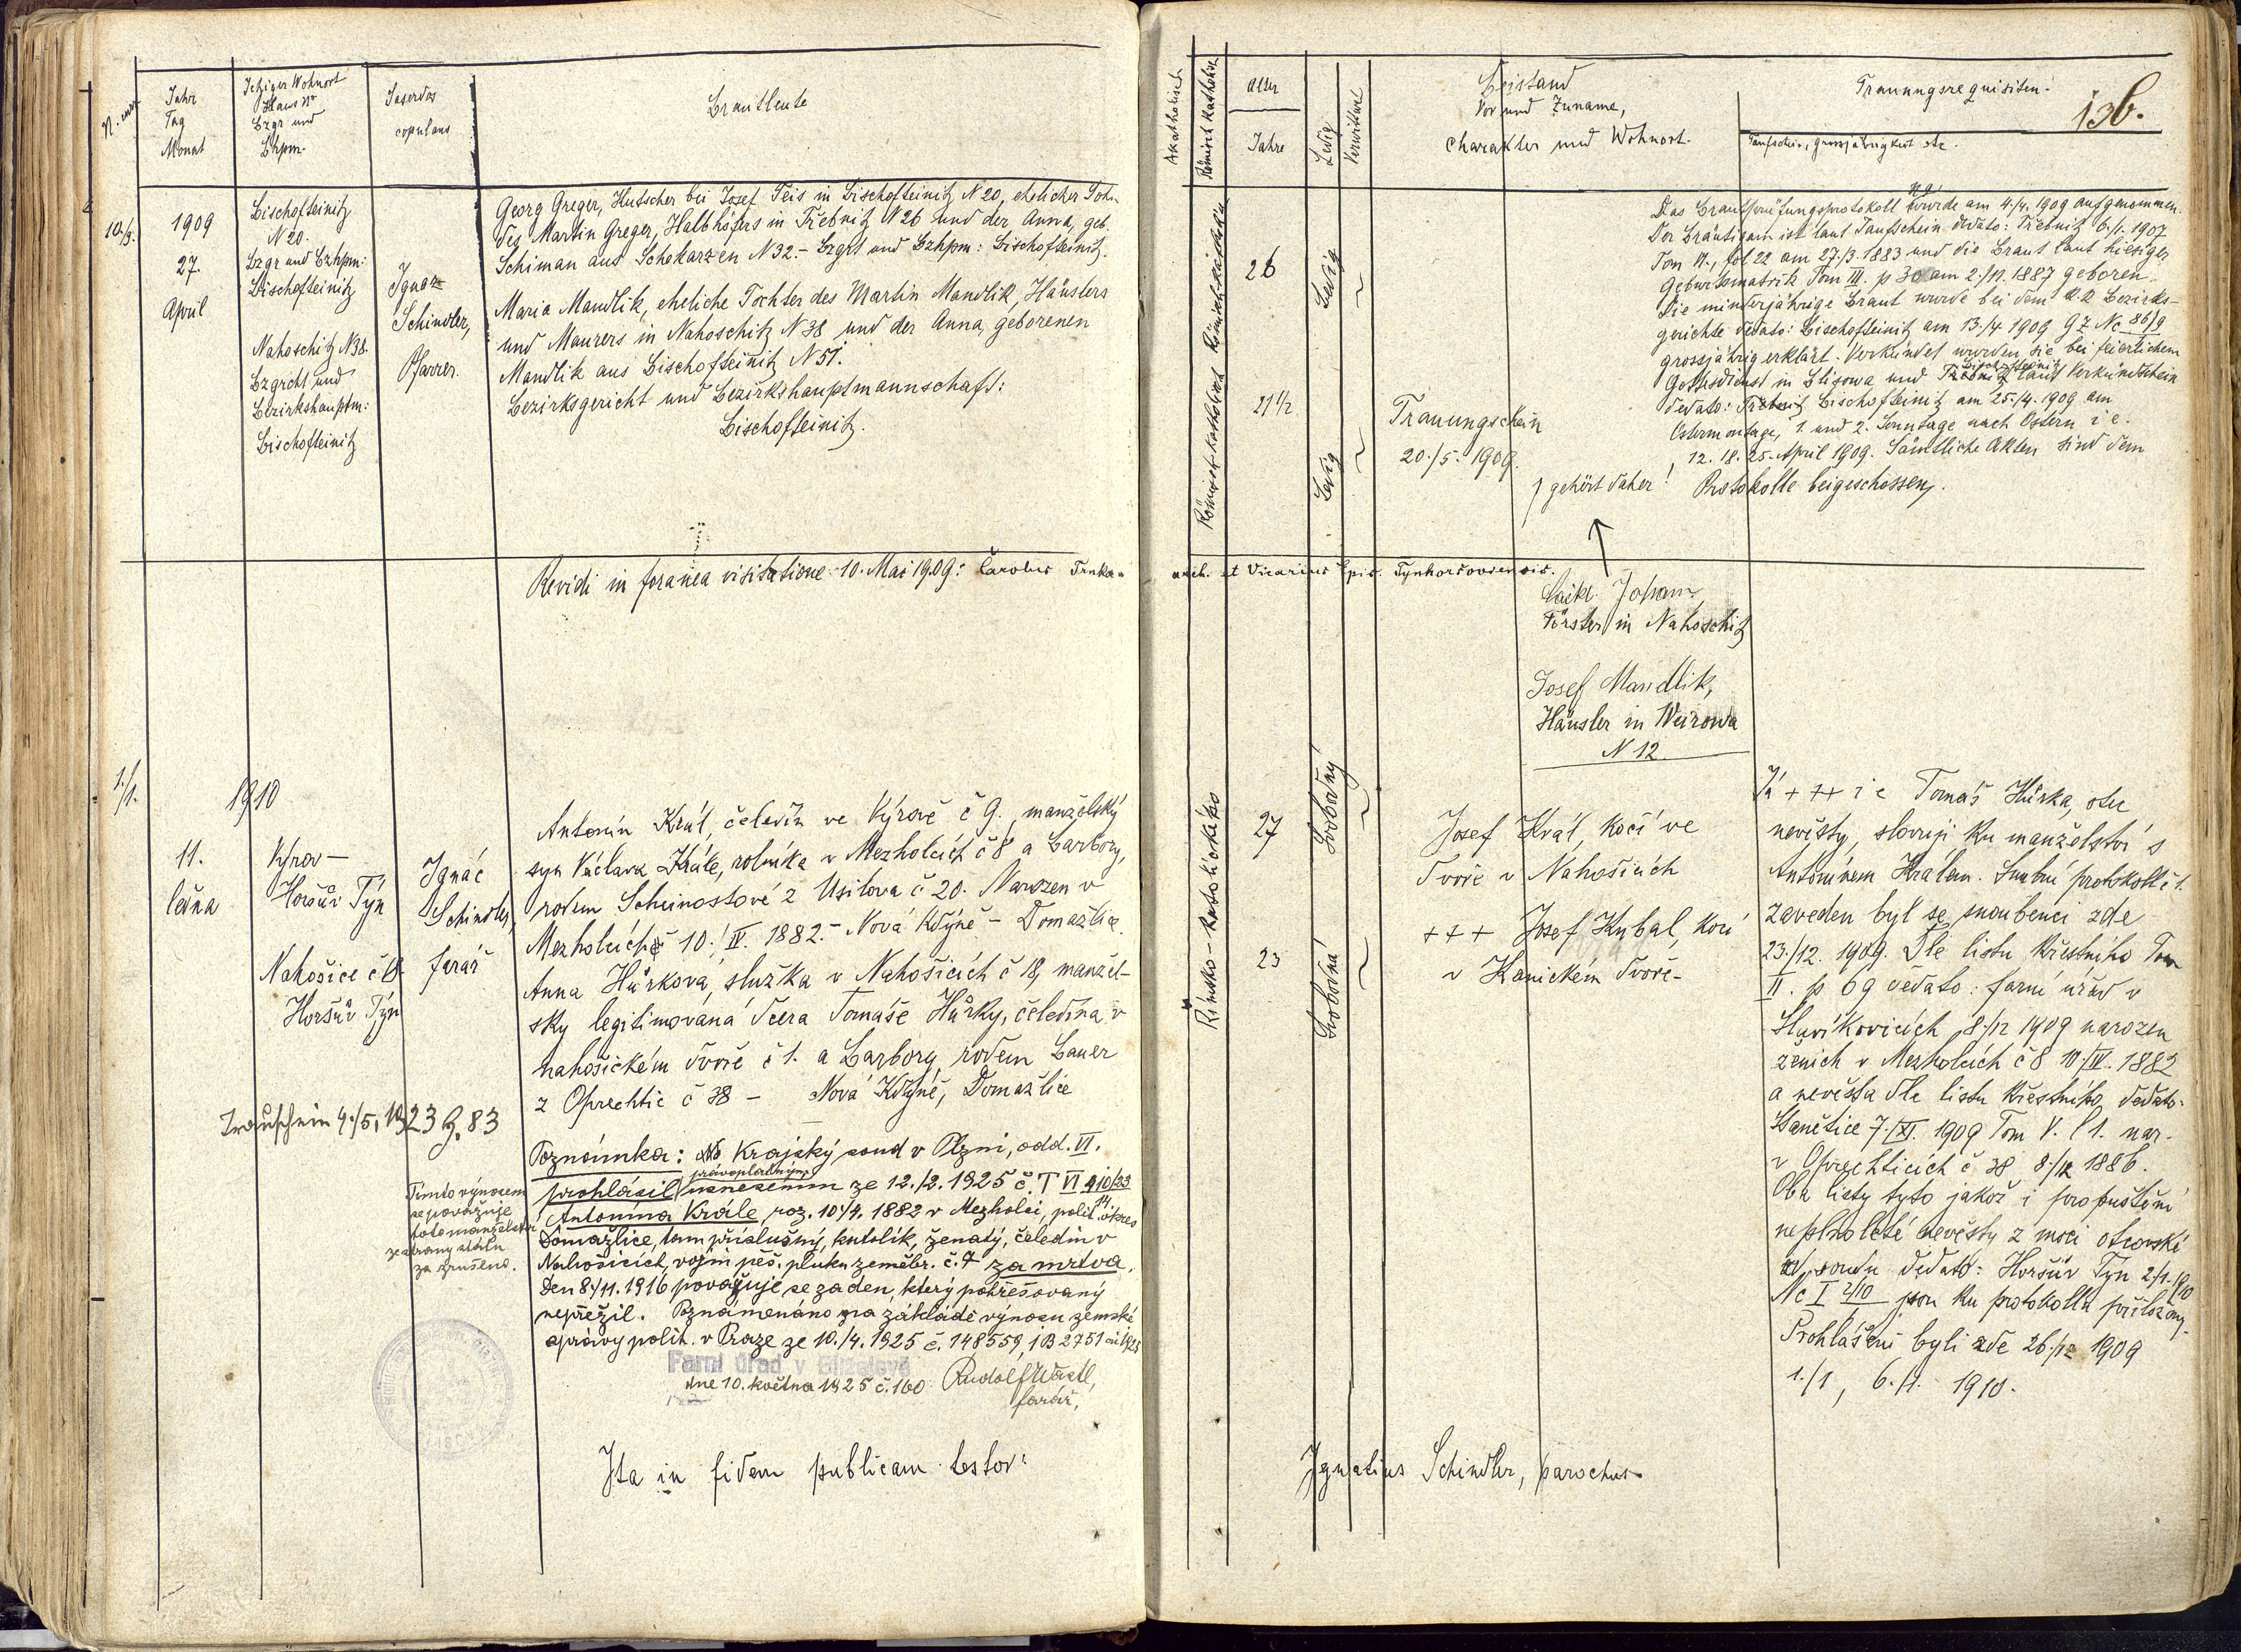 N. curr.
Jahr
Tag
Monat
Jetziger Wohnort
Haus Nr
Bzgr und
Bhpm.
Sacerdos
copulans
Brautleute
10./9.
1909
27.
April
Bischofteinitz
N 20.
Bzgr und Bzhpm:
Bischofteinitz
Nahoschitz N 38.
Bzgricht und
Bezirkshauptm:
Bischofteinitz
Ignaz
Schindler,
Pfarrer.
Georg Greger, Kutscher bei Josef Teis in Bischofteinitz N 20, ehelicher Sohn
des Martin Greger, Halbhöfers in Třebnitz N 26 und der Anna, geb.
Schiman aus Schekarzen N 32.- Bzgrt und Bzhpm: Bischofteinitz.
Maria Mandlik, eheliche Tochter des Martin Mandlik, Häuslers
und Maurers in Nahoschitz N 38 und der Anna, geborenen
Mandlik aus Bischofteinitz N 51.
Bezirksgericht und Bezirkshauptmannschaft:
Bischofteinitz.
Revidi in foranea visitatione 10. Mai 1909: Carolus Trnka
1./1.
1910
11.
ledna
Výrov -
Horšův Týn
Nahošice č 18
Horšův Týn
Ignác
Schindler,
farář
Antonín Král, čeledín ve Výrově č 9., manželský
syn Václava Krále, rolníka v Mezholcích č 8 a Barbory,
rodem Scheinostové z Úsilova č 20. Narozen v
Mezholcích 10./IV. 1882.- Nová Kdýně - Domažlice.
Anna Hůrková, služka v Nahošicích č 18, manžel-
sky legitimovaná dcera Tomáše Hůrky, čeledína v
nahošickém dvoře č 1. a Barbory, rodem Bauer
z Oprechtic č 38 - Nová Kdyně, Domažlice
Trauschein 4./5. 1923 Z. 83
Poznámka: Krajský soud v Plzni, odd. VI.
prohlásil právoplatným usnesením ze 12./2. 1925 č. T VI 410/23
14
Antonína Krále, roz. 10./4. 1882 v Mezholci, polit. okres
Domažlice, tam příslušný, katolík, ženatý, čeledín v
Nahošicích, vojín pěš. pluku zeměbr. č. 7 za mrtva.
Den 8./11. 1916 považuje se za den, který pohřešovaný
nepřežil. Poznamenáno na základě výnosu zemské
správy polit. v Praze ze 10./4. 1925 č. 148559, 1B 2751 ai 1925
Tímto výnosem
se považuje
toto manželství
ze strany státu
za zrušeno.
Farní úřad v Blížejově
dne 10. května 1925 č. 160
Rudolf Wastl,
farář,
Ita in fidem publicam testor:
Akatholisch
Römisch Katholisch
Alter
Jahre
Ledig
Verwittwet
Beistand
Vor und Zuname,
Charakter und Wohnort.
Trauungsrequisiten.
136.
Taufschein, grossjährigkeit etc.
Römisch-katholisch
26
Ledig
Römisch-katholisch
21 1/2
Ledig
Trauungschein
20./5. 1909.
gehört daher!
Das Brautprüfungsprotokoll wurde am 4./4. 1909 aufgenommen.
Der Bräutigam ist laut Taufschein dedato: Třebnitz 6./1. 1907
fol 22 am 27./3. 1883 und die Braut laut hiesiger
Geburtsmatrik Tom III. p 30 am 2./12. 1887 geboren.
Die minderjährige Braut wurde bei dem k.k Bezirks-
gerichte dedato: Bischofteinitz am 13./4 1909 GZ Nc 86/9
grossjährig erklärt. Verkündet wurden sie bei feierlichem
Gottesdienst in Blisowa und Bischofteinitz laut Verkündschein
dedato: Bischofteinitz am 25./4. 1909 am
Ostermontage, 1. und 2. Sonntage nach Ostern i e.
12. 18. 25. April 1909. Sämtliche Akten sind dem
Protokolle beigeschossen.
arch. et Vicarius Epis. Tynhoršoviensis.
Johann,
Förster in Nahoschitz
Josef Mandlik,
Häusler in Weirowa
N 12.
Římsko-katolické
27
Svobodný
23
Svobodná
Josef Král, kočí ve
dvoře v Nahošicích
+++ Josef Kubal, kočí
v Kanickém dvoře -
Já +++ i e Tomáš Hůrka, otec
nevěsty, slovuji ku manželství s
Antonínem Králem. Snubní protokoll č 1.
zaveden byl se snoubenci zde
23./12. 1909. Dle listu křestního Tom
II. p 69 dedato: farní úřad v
Slavíkovicích 8./12 1909 narozen
ženich v Mezholcích č 8 10/IV. 1882
a nevěsta dle listu křestního dedato:
Stanětice 7./XI. 1909 Tom V. l 1. nar.
v Oprechticích č 38 8./12 1886.
Oba listy tyto jakož i propuštění
neplnoleté nevěsty z moci otcovské
od soudu dedato: Horšův Týn 2./1. 1910
Nc I 2/10 jsou ku protokollu přiloženy.
Prohlášeni byli zde 26./12 1909
1./1, 6./1. 1910.
Ignatius Schindler, parochus